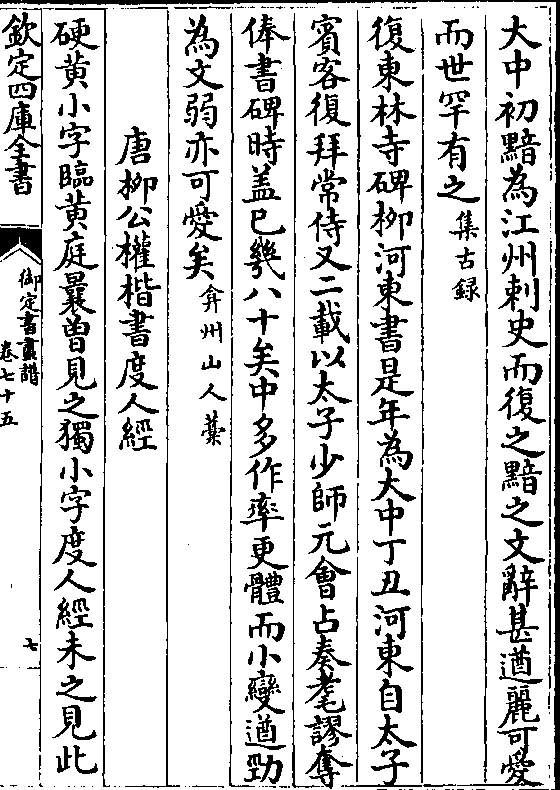 大中初黯為江州刺史而復之黯之文辭甚遒麗可愛
而世罕有之集古録
復東林寺碑柳河東書是年為大中丁丑河東自太子
賓客復拜常侍又二載以太子少師元會占奏耄謬奪
俸書碑時盖已幾八十矣中多作率更體而小變遒勁
為文弱亦可愛矣弇州山人藁
唐柳公權楷書度人經
硬黄小字臨黄庭曩曾見之獨小字度人經未之見此
欽定四庫全書
御定書畫譜
卷七十五
七